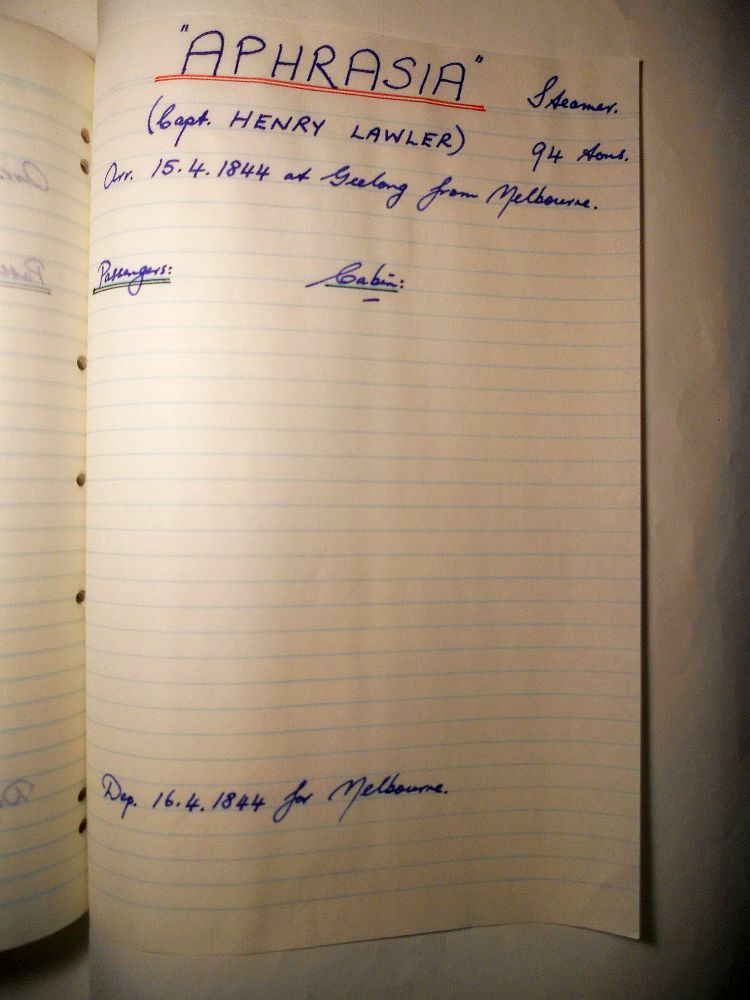 "APHRASIA" Steamer.
(Capt. HENRY LAWLER) 94 tons.
Arr. 15.4.1844 at Geelong from Melbourne.
Passengers: Cabin:
Dep. 16.4.1844 for Melbourne.